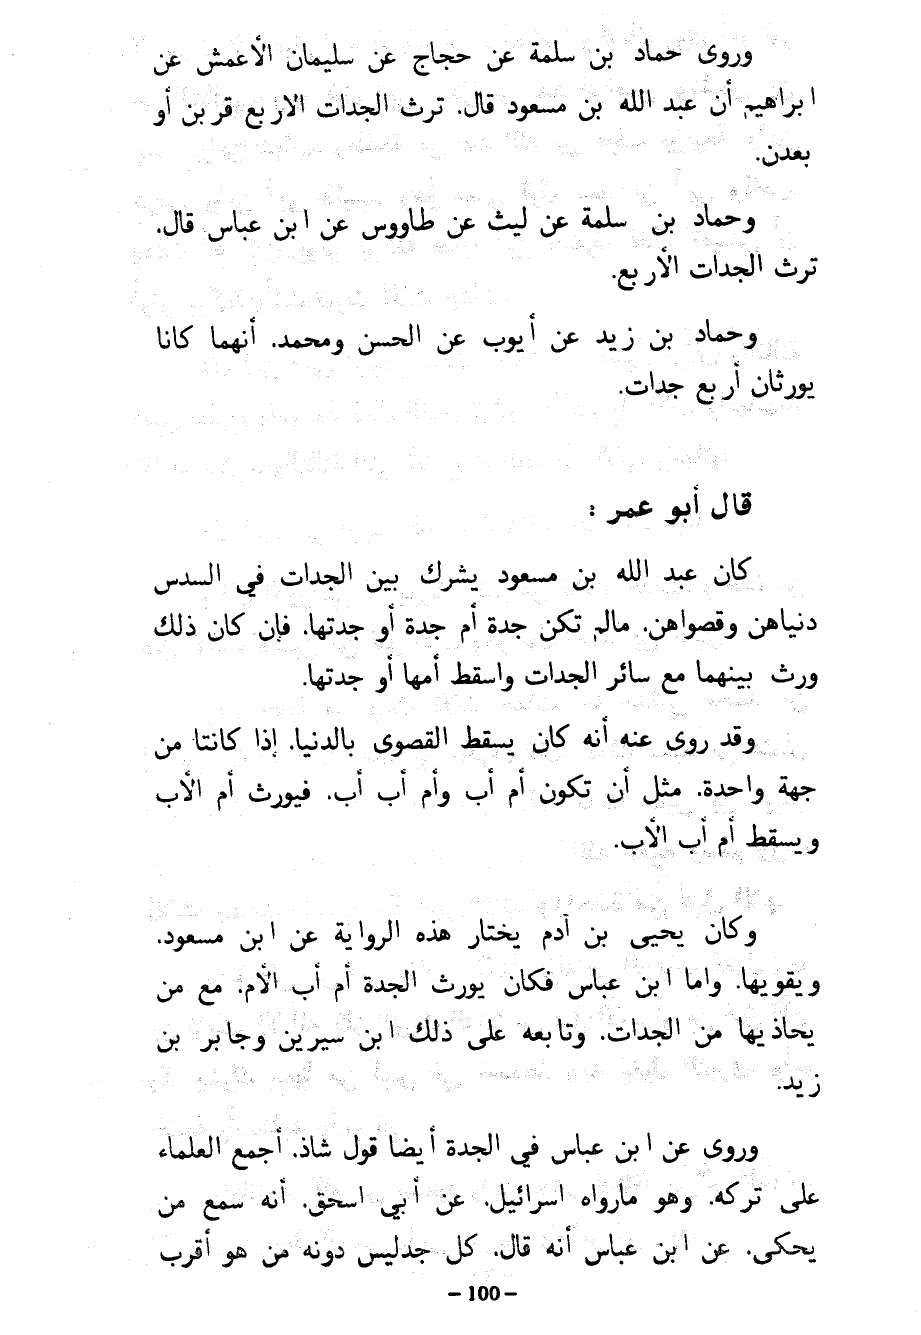 وروى حماد بن سلمة عن حجاج عن سليمان الأعمش عن
ابراهيم أن عبد الله بن مسعود قال. ترث الجدات الاربع قربن أو
بعدن.
وحماد بن سلمة عن ليث عن طاووس عن ابن عباس قال.
ترث الجدات الأربع.
وحماد بن زيد عن أيوب عن الحسن ومحمد. أنهما كانا
يورثان أربع جدات.
قال أبو عمر :
كان عبد الله بن مسعود يشرك بين الجدات في السدس
دنياهن وقصواهن. مالم تكن جدة أم جدة أو جدتها. فإن كان ذلك
ورث بينهما مع سائر الجدات واسقط أمها أو جدتها.
وقد روى عنه أنه كان يسقط القصوى بالدنيا. إذا كانتا من
جهة واحدة. مثل أن تكون أم أب وأم أب أب. فيورث أم الأب
ويسقط أم أب الأب.
وكان يحيى بن آدم يختار هذه الرواية عن ابن مسعود.
ويقويها. واما ابن عباس فكان يورث الجدة أم أب الأم. مع من
يحاذيها من الجدات. وتابعه على ذلك ابن سيرين وجابر بن
زيد.
وروى عن ابن عباس في الجدة أيضا قول شاذ. أجمع العلماء
على تركه. وهو مارواه اسرائيل. عن أبي اسحق. أنه سمع من
يحكى. عن ابن عباس أنه قال. كل جدليس دونه من هو أقرب
– 100 –